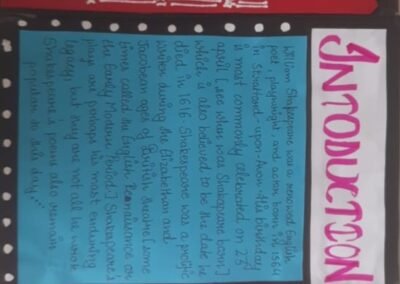 INTODUCTION
William Shakespeare was a renowned English
poet, playwright, and actor born in 1564
in Stratford-upon-Avon. His birthday
is most commonly celebrated on 23rd
April [see when was Shakespeare born]
which is also believed to be the date he
died in 1616. Shakespeare was a prolific
writer during the Elizabethan and
Jacobean ages of British theatre [some
times called the English Renaissance or
the Early Modern Period.] Shakespeare's
plays are perhaps his most enduring
legacy, but they are not all he wrote
Shakespeare's poems also remain
popular to this day...